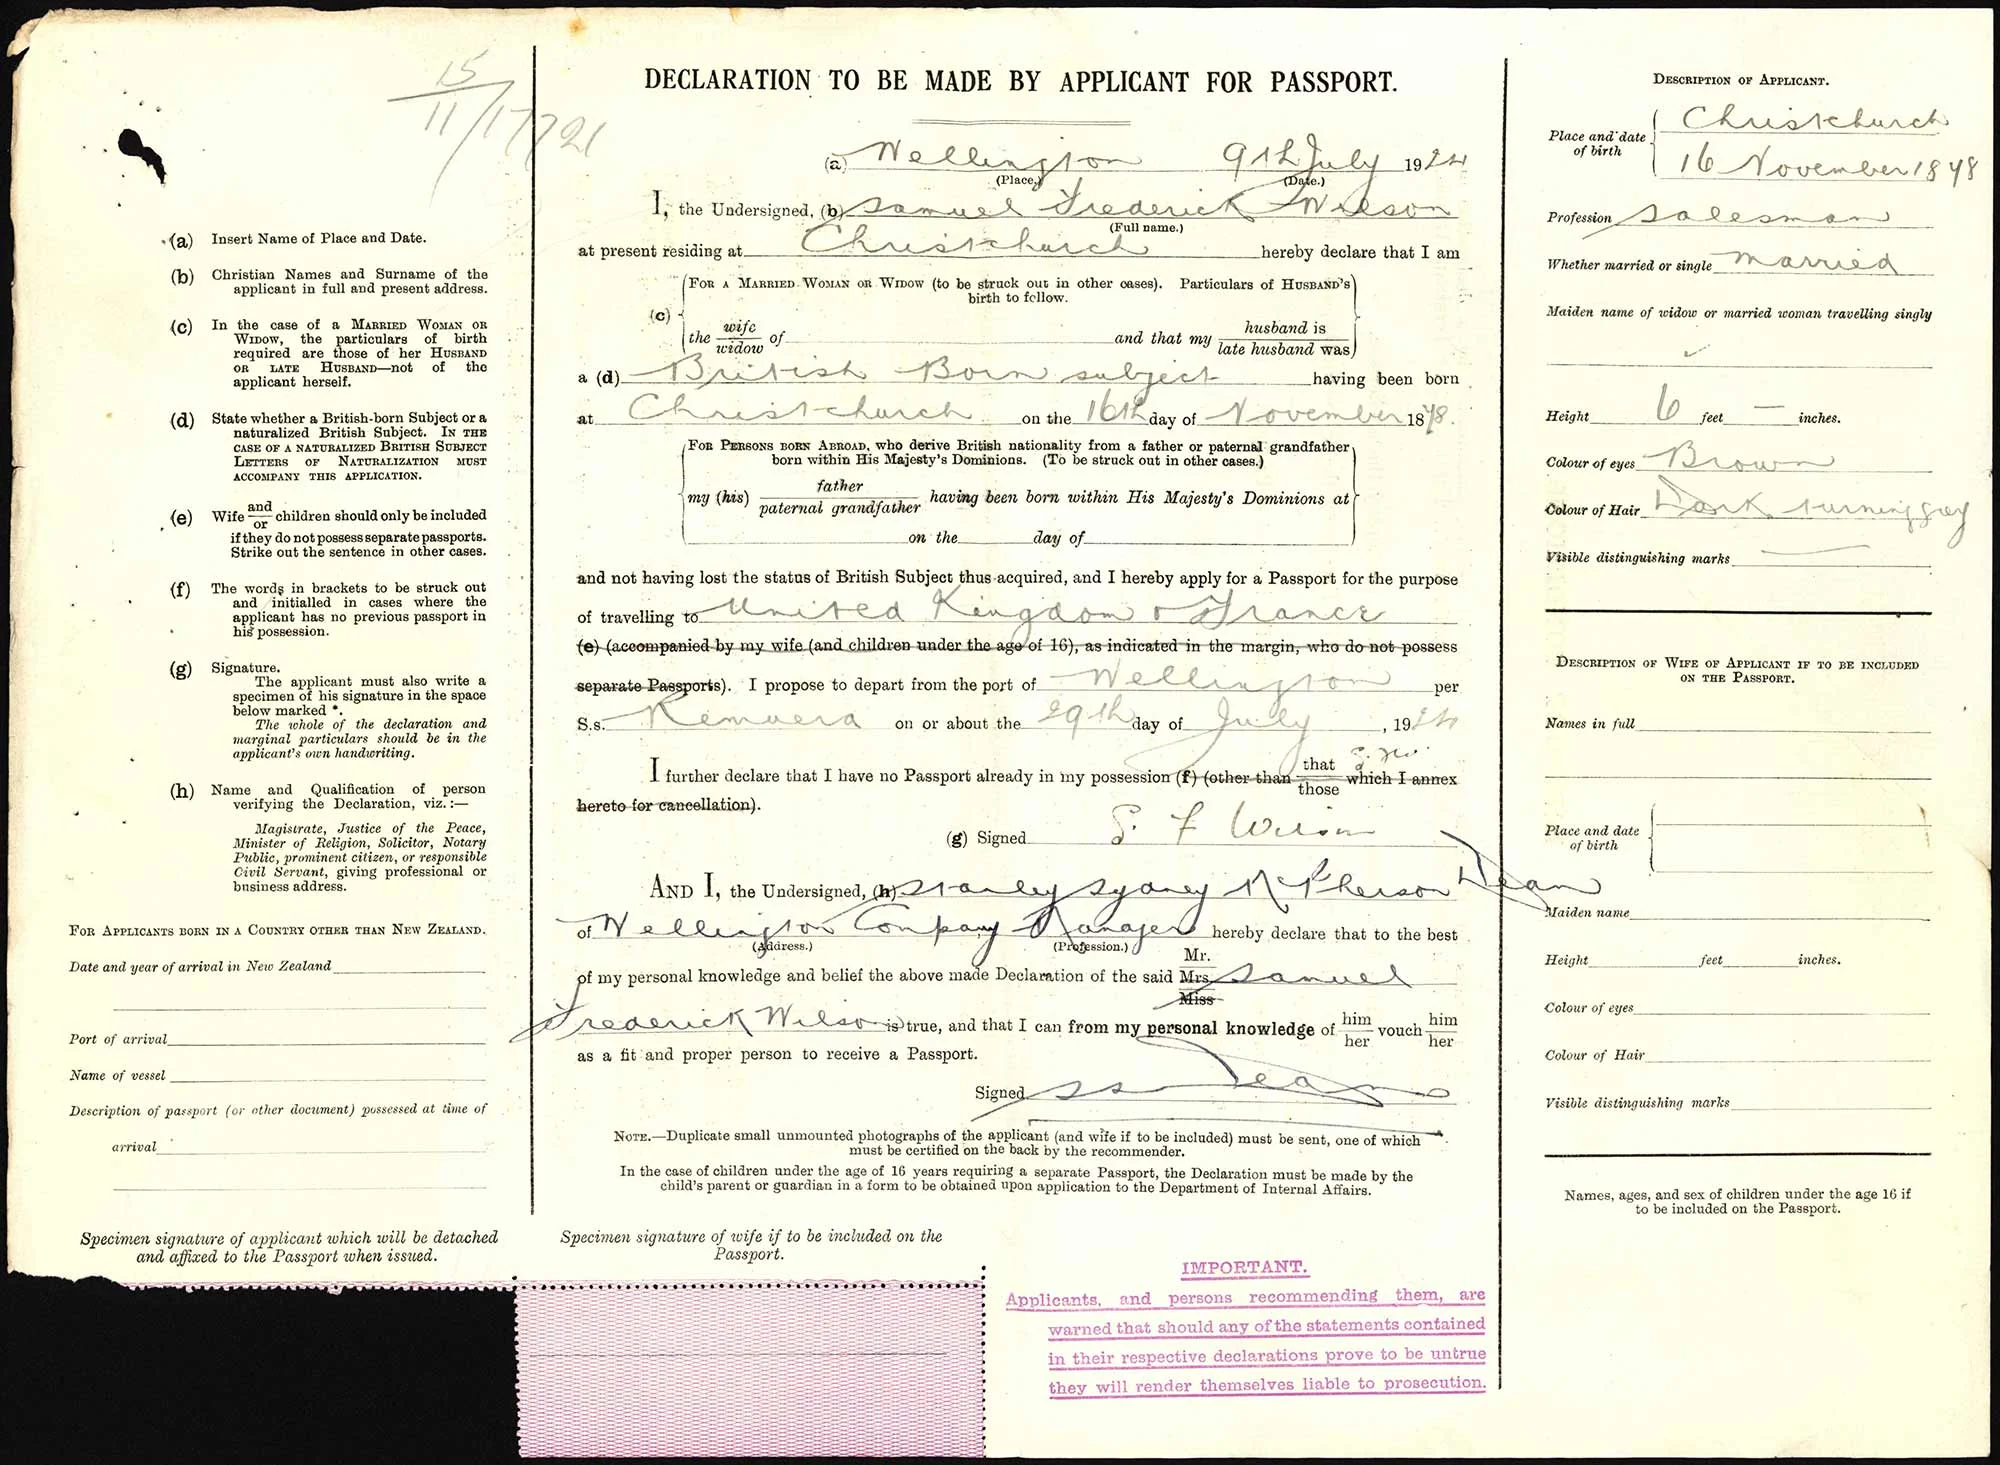 15
11/17721
(a) Insert Name of Place and Date.
(b) Christian Names and Surname of the
applicant in full and present address.
(c) In the case of a MARRIED WOMAN OR
WIDOW, the particulars of birth
required are those of her HUSBAND
OR LATE HUSBAND—not of the
applicant herself.
(d) State whether a British-born Subject or a
naturalized British Subject. IN THE
CASE OF A NATURALIZED BRITISH SUBJECT
LETTERS OF NATURALIZATION MUST
ACCOMPANY THIS APPLICATION.
(e) Wife and/or children should only be included
if they do not possess separate passports.
Strike out the sentence in other cases.
(f) The words in brackets to be struck out
and initialled in cases where the
applicant has no previous passport in
his possession.
(g) Signature.
The applicant must also write a
specimen of his signature in the space
below marked *.
The whole of the declaration and
marginal particulars should be in the
applicant's own handwriting.
(h) Name and Qualification of person
verifying the Declaration, viz.:—
Magistrate, Justice of the Peace,
Minister of Religion, Solicitor, Notary
Public, prominent citizen, or responsible
Civil Servant, giving professional or
business address.
FOR APPLICANTS BORN IN A COUNTRY OTHER THAN NEW ZEALAND.
Date and year of arrival in New Zealand
Port of arrival
Name of vessel
Description of passport (or other document) possessed at time of
arrival
Specimen signature of applicant which will be detached
and affixed to the Passport when issued.
DECLARATION TO BE MADE BY APPLICANT FOR PASSPORT.
(a) Wellington 9th July 1924
(Place.) (Date.)
I, the Undersigned, (b) Samuel Frederick Wilson
(Full name.)
at present residing at Christchurch hereby declare that I am
(c) FOR A MARRIED WOMAN OR WIDOW (to be struck out in other cases). Particulars of HUSBAND'S
birth to follow.
the wife/widow of and that my husband is/late husband was
a (d) British Born subject having been born
at Christchurch on the 16th day of November 1878.
FOR PERSONS BORN ABROAD, who derive British nationality from a father or paternal grandfather
born within His Majesty's Dominions. (To be struck out in other cases.)
my (his) father/paternal grandfather having been born within His Majesty's Dominions at
on the day of
and not having lost the status of British Subject thus acquired, and I hereby apply for a Passport for the purpose
of travelling to United Kingdom & France
(e) (accompanied by my wife (and children under the age of 16), as indicated in the margin, who do not possess
separate Passports). I propose to depart from the port of Wellington per
S.s. Remuera on or about the 29th day of July, 1924
I further declare that I have no Passport already in my possession (f) (other than that/those which I annex
hereto for cancellation).
(g) Signed S. F Wilson
AND I, the Undersigned, (h) Stanley Sydney McPherson Dean
of Wellington Company Manager hereby declare that to the best
(Address.) (Profession.)
of my personal knowledge and belief the above made Declaration of the said Mr. Mrs. Miss Samuel
Frederick Wilson is true, and that I can from my personal knowledge of him/her vouch him/her
as a fit and proper person to receive a Passport.
Signed S S Dean
NOTE.—Duplicate small unmounted photographs of the applicant (and wife if to be included) must be sent, one of which
must be certified on the back by the recommender.
In the case of children under the age of 16 years requiring a separate Passport, the Declaration must be made by the
child's parent or guardian in a form to be obtained upon application to the Department of Internal Affairs.
Specimen signature of wife if to be included on the
Passport.
IMPORTANT.
Applicants, and persons recommending them, are
warned that should any of the statements contained
in their respective declarations prove to be untrue
they will render themselves liable to prosecution.
DESCRIPTION OF APPLICANT.
Place and date of birth Christchurch
16 November 1878
Profession Salesman
Whether married or single Married
Maiden name of widow or married woman travelling singly
Height 6 feet — inches.
Colour of eyes Brown
Colour of Hair Dark turning grey
Visible distinguishing marks —
DESCRIPTION OF WIFE OF APPLICANT IF TO BE INCLUDED
ON THE PASSPORT.
Names in full
Place and date
of birth
Maiden name
Height feet inches.
Colour of eyes
Colour of Hair
Visible distinguishing marks
Names, ages, and sex of children under the age 16 if
to be included on the Passport.